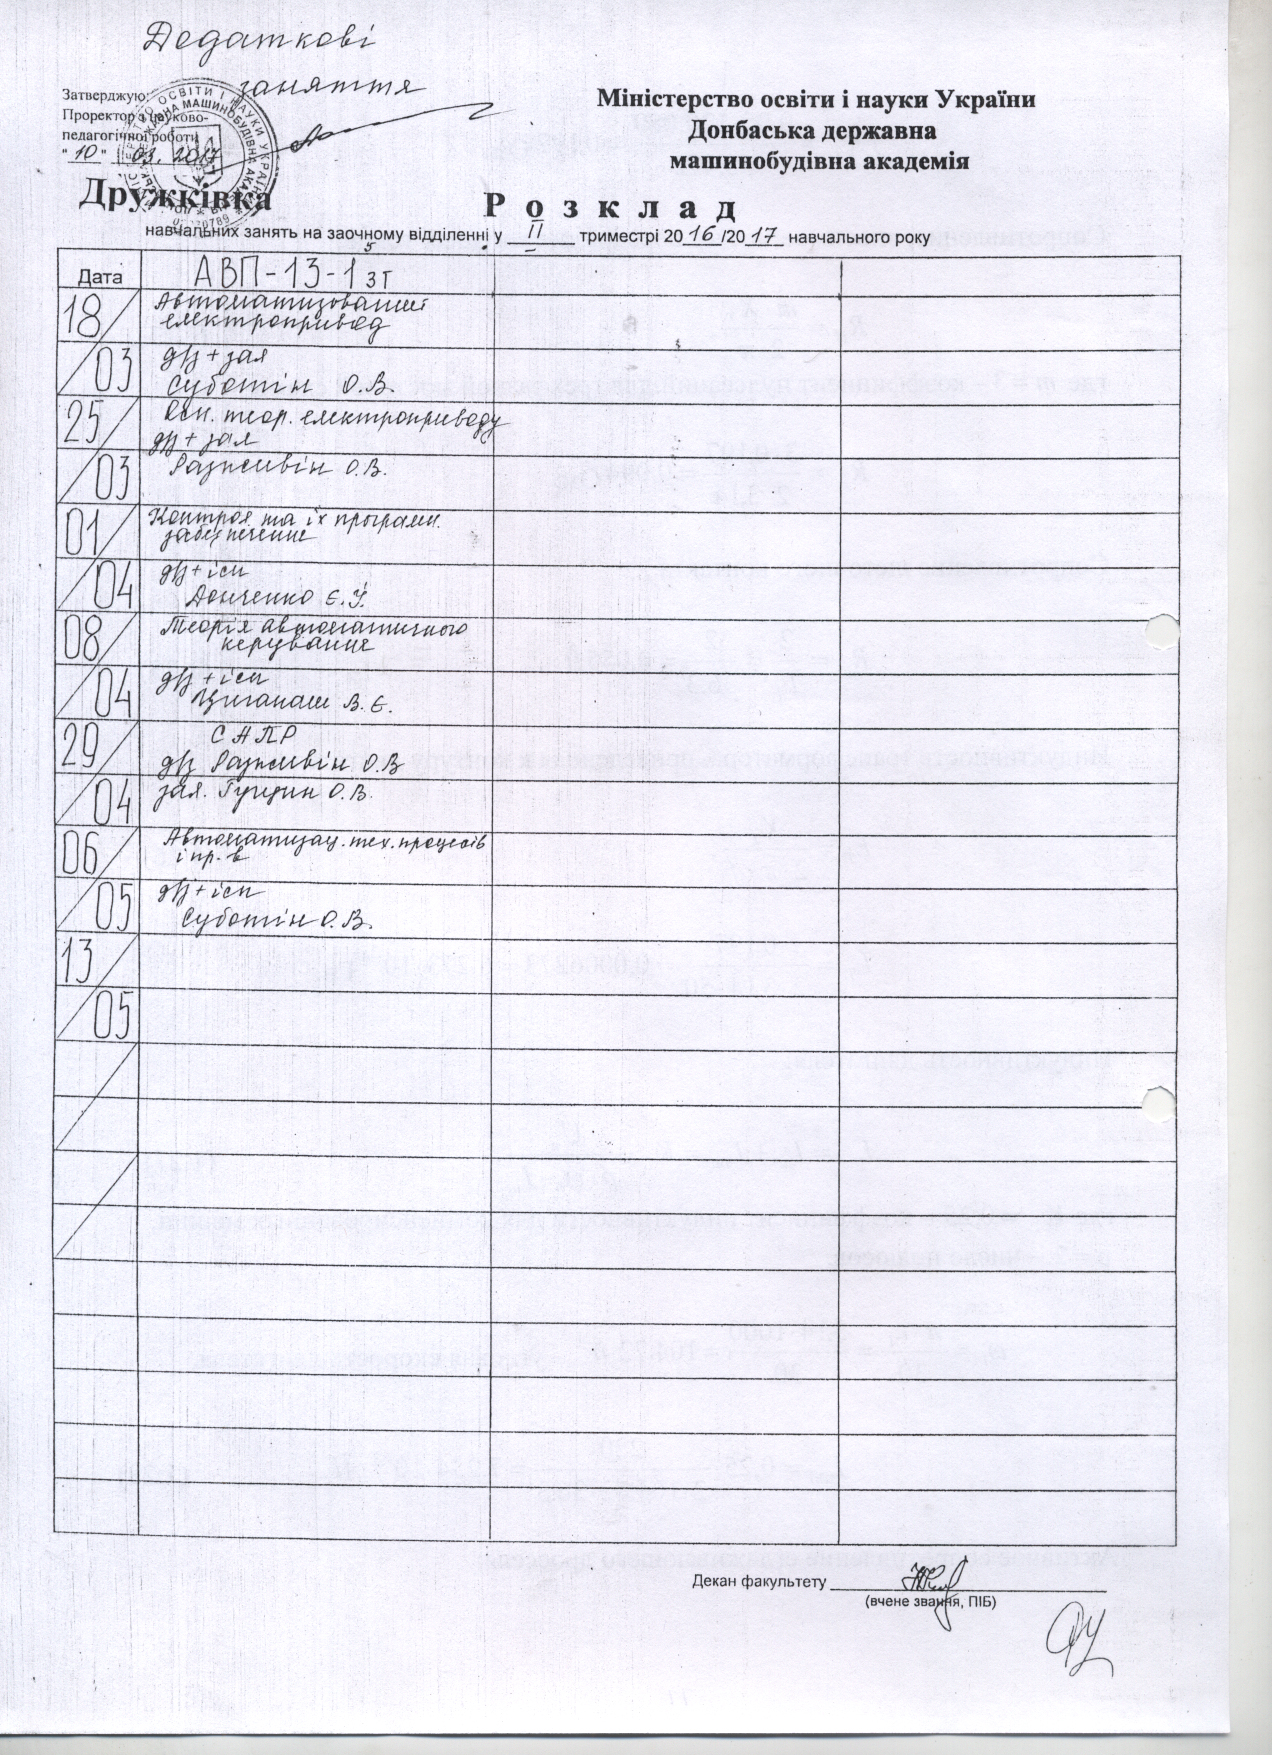 Додаткові
заняття
Затверджую:
Проректор з науково-
педагогічної роботи
"10" 03. 2017
Дружківка
Міністерство освіти і науки України
Донбаська державна
машинобудівна академія
Розклад
навчальних занять на заочному відділенні у II триместрі 2016/2017 навчального року
Дата АВП-13-1зт
18/03
Автоматизований
електропривод
др + зал
Суботін О.В.
25/03
Осн. теор. електроприводу
др + зал
Разживін О.В.
01/04
Контрол. та їх програмн.
забезпечення
др + ісп
Донченко Є.І.
08/04
Теорія автоматичного
керування
др + ісп
Циганаш В.Є.
29/04
САПР
др Разживін О.В
зал. Гущин О.В.
06/05
Автоматизац. тех. процесів
і пр-в
др + ісп
Суботін О.В.
13/05
Декан факультету
(вчене звання, ПІБ)